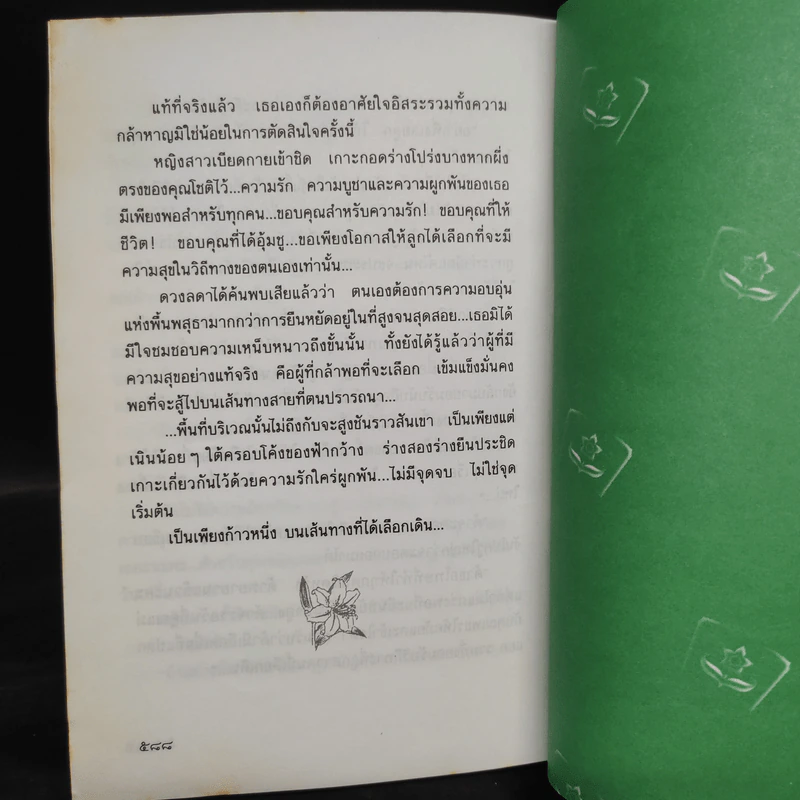 แท้ที่จริงแล้ว เธอเองก็ต้องอาศัยใจอิสระรวมทั้งความ
กล้าหาญมิใช่น้อยในการตัดสินใจครั้งนี้
หญิงสาวเบียดกายเข้าชิด เกาะกอดร่างโปร่งบางหากผึ่ง
ตรงของคุณโชติไว้...ความรัก ความบูชาและความผูกพันของเธอ
มีเพียงพอสำหรับทุกคน...ขอบคุณสำหรับความรัก! ขอบคุณที่ให้
ชีวิต! ขอบคุณที่ได้อุ้มชู...ขอเพียงโอกาสให้ลูกได้เลือกที่จะมี
ความสุขในวิถีทางของตนเองเท่านั้น...
ดวงลดาได้ค้นพบเสียแล้วว่า ตนเองต้องการความอบอุ่น
แห่งพื้นพสุธามากกว่าการยืนหยัดอยู่ในที่สูงจนสุดสอย...เธอมิได้
มีใจชมชอบความเหน็บหนาวถึงขั้นนั้น ทั้งยังได้รู้แล้วว่าผู้ที่มี
ความสุขอย่างแท้จริง คือผู้ที่กล้าพอที่จะเลือก เข้มแข็งมั่นคง
พอที่จะสู้ไปบนเส้นทางสายที่ตนปรารถนา...
...พื้นที่บริเวณนั้นไม่ถึงกับจะสูงชันราวสันเขา เป็นเพียงแต่
เนินน้อยๆ ใต้ครอบโค้งของฟ้ากว้าง ร่างสองร่างยืนประชิด
เกาะเกี่ยวกันไว้ด้วยความรักใคร่ผูกพัน...ไม่มีจุดจบ ไม่ใช่จุด
เริ่มต้น
เป็นเพียงก้าวหนึ่ง บนเส้นทางที่ได้เลือกเดิน...
๕๘๘